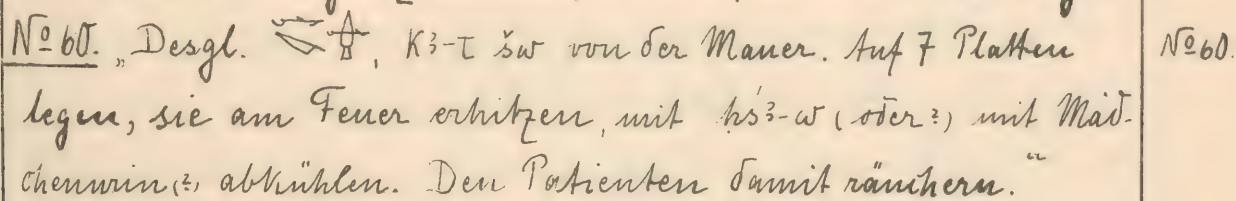 № 60. „Desgl. , K³-T šw von der Mauer. Auf 7 Platten № 60.
legen, sie am Feuer erhitzen, mit ḥś³-w (oder?) mit Mäd-
chenurin (?) abkühlen. Den Patienten damit räuchern.“